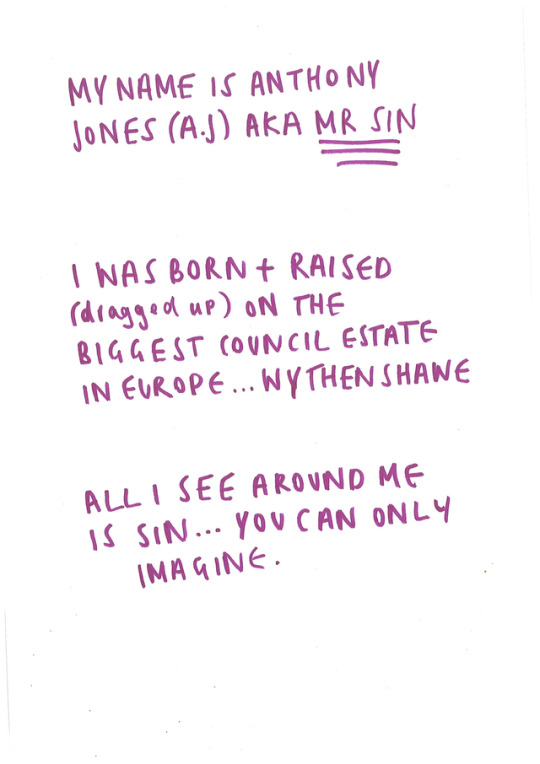 MY NAME IS ANTHONY
JONES (A.J) AKA MR SIN
I WAS BORN + RAISED
(dragged up) ON THE
BIGGEST COUNCIL ESTATE
IN EUROPE... WYTHENSHAWE
ALL I SEE AROUND ME
IS SIN... YOU CAN ONLY
IMAGINE.